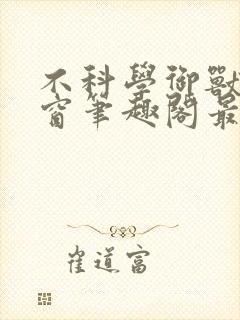 不科學御獸
窗筆趣閣最
崔道富